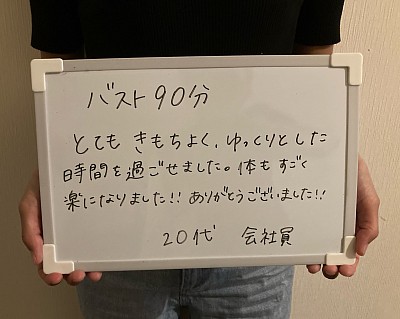 バスト90分
とても きもちよく、ゆっくりとした
時間を過ごせました。体も すごく
楽になりました!! ありがとうございました!!
20代 会社員